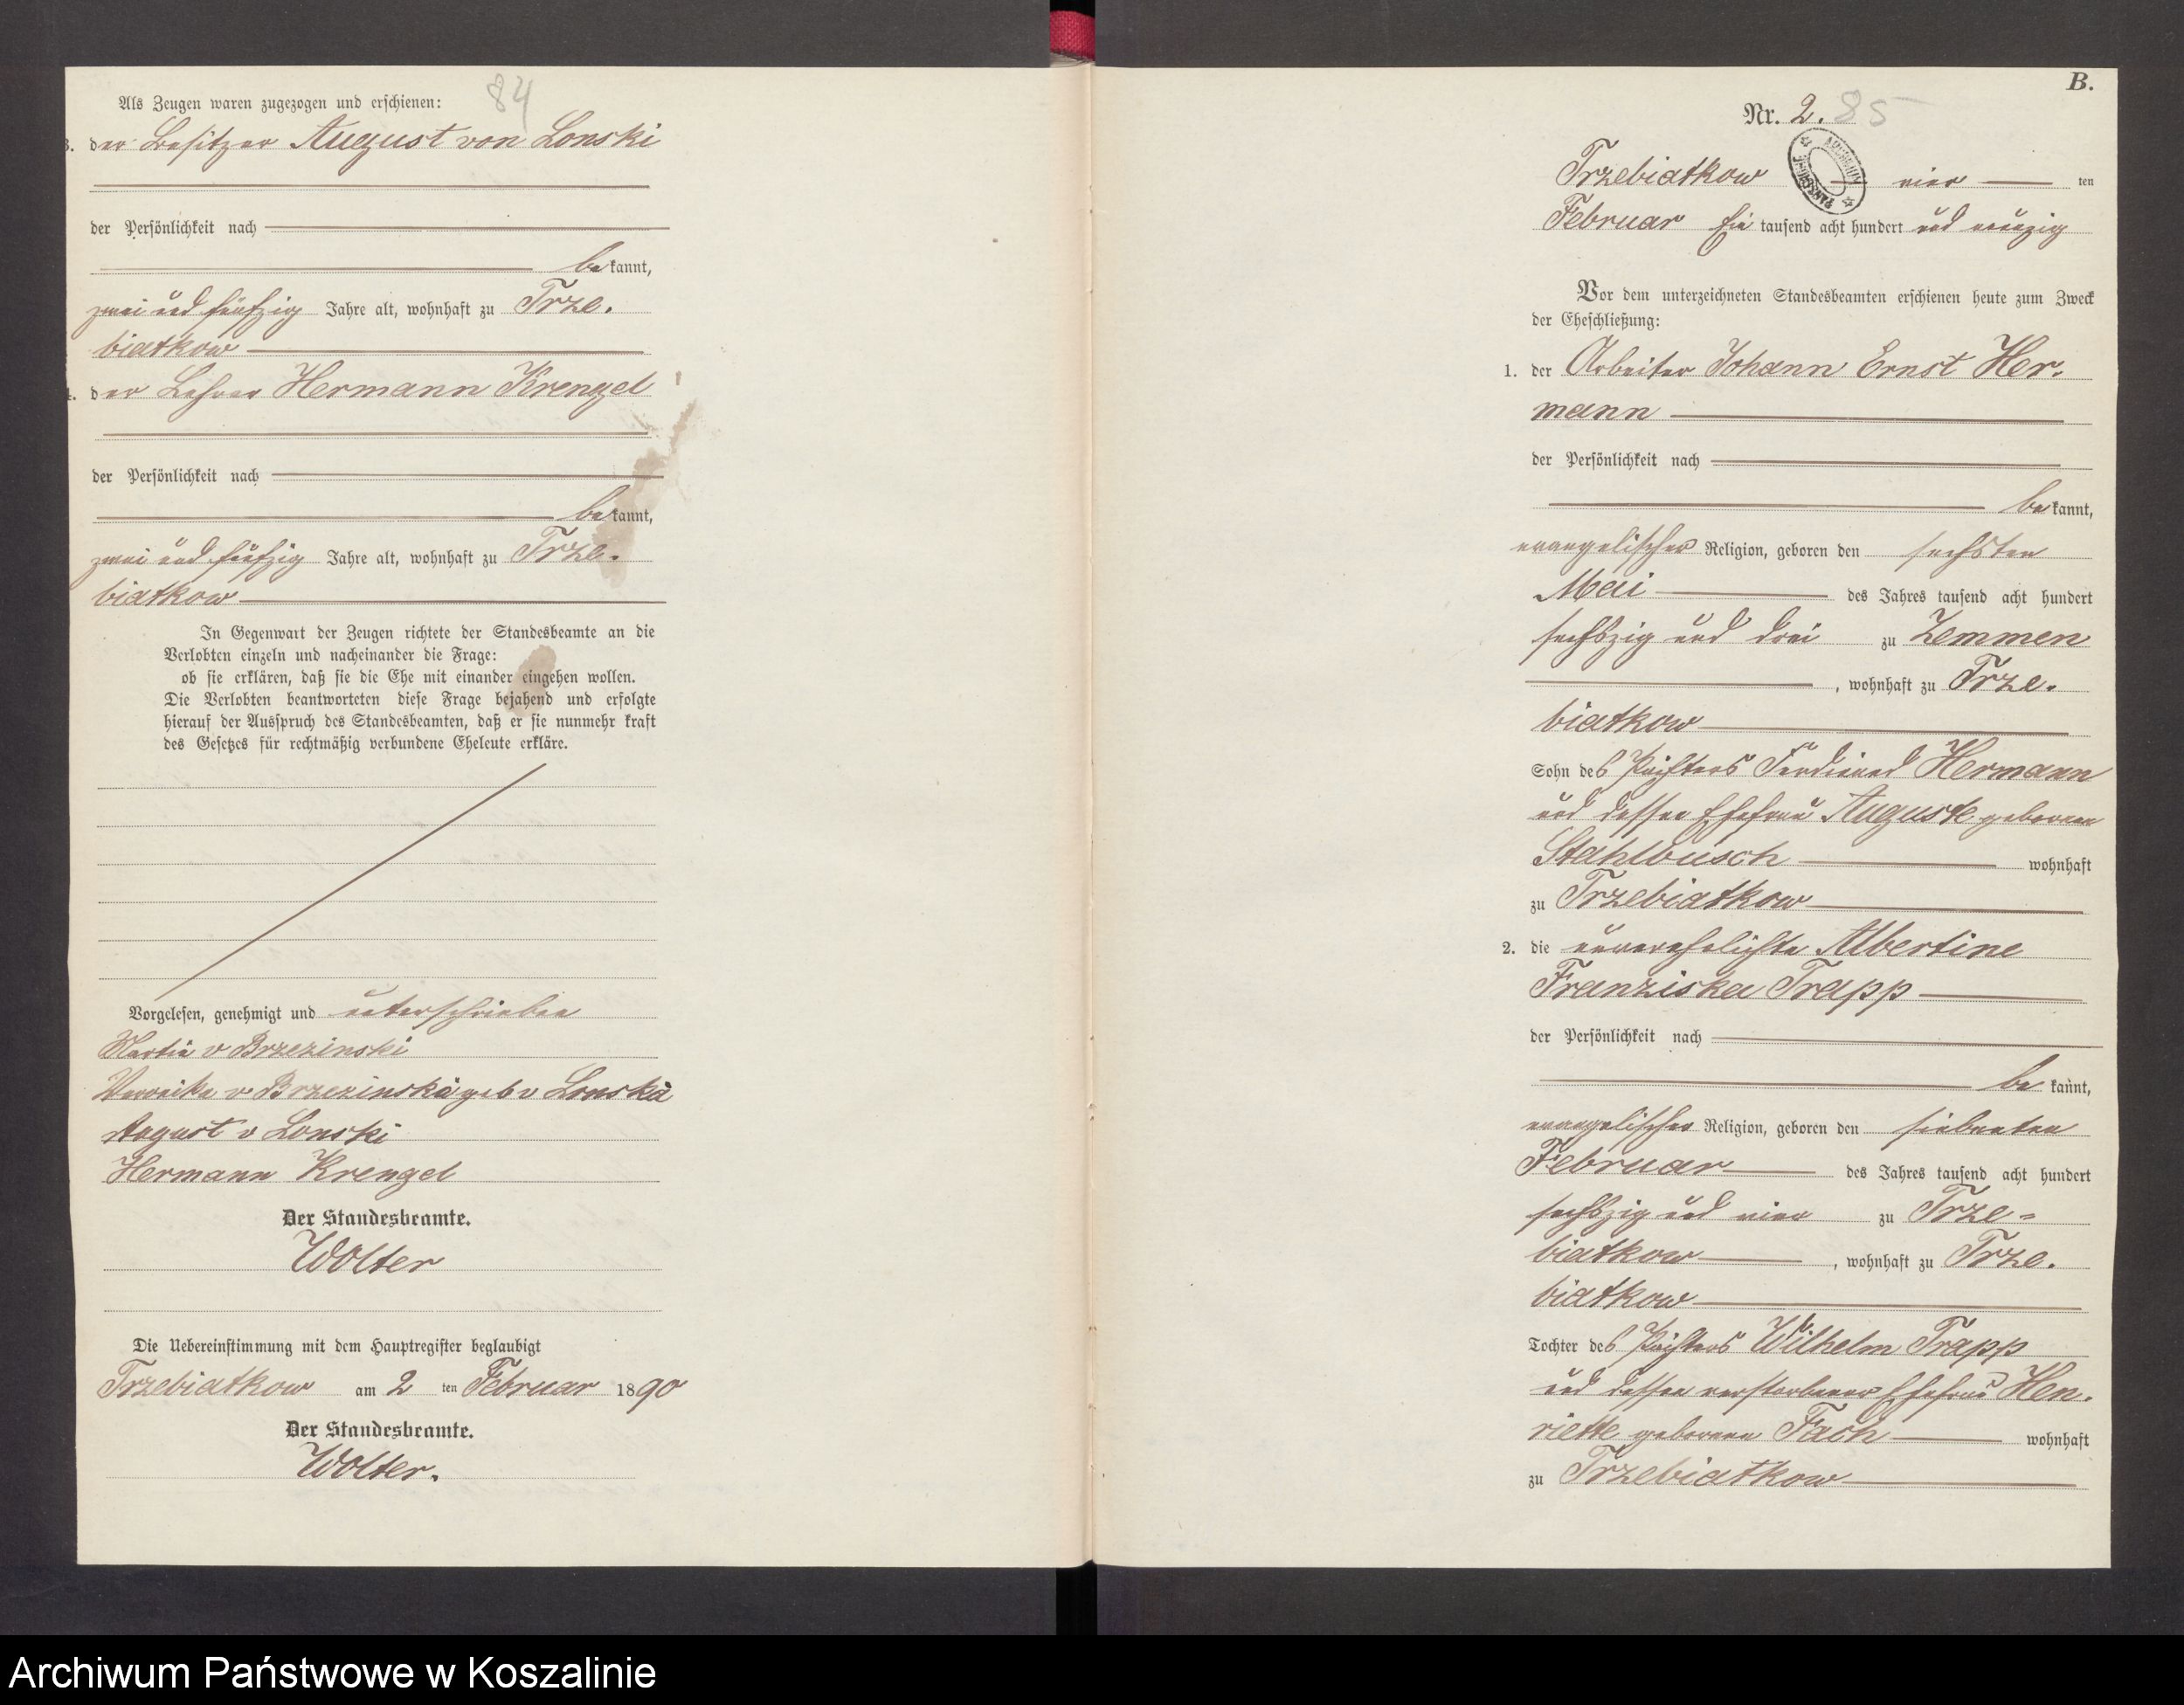 84
Als Zeugen waren zugezogen und erschienen:
3. der Besitzer August von Lonski
der Persönlichkeit nach
be kannt,
zwei und fünfzig Jahre alt, wohnhaft zu Trze-
biatkow
4. der Lehrer Hermann Krengel
der Persönlichkeit nach
be kannt,
zwei und fünfzig Jahre alt, wohnhaft zu Trze-
biatkow
In Gegenwart der Zeugen richtete der Standesbeamte an die
Verlobten einzeln und nacheinander die Frage:
ob sie erklären, daß sie die Ehe mit einander eingehen wollen.
Die Verlobten beantworteten diese Frage bejahend und erfolgte
hierauf der Ausspruch des Standesbeamten, daß er sie nunmehr kraft
des Gesetzes für rechtmäßig verbundene Eheleute erkläre.
Vorgelesen, genehmigt und unterschrieben
Martin v Brzezinski
Veronika v Brzezinska geb v Lonska
August v Lonski
Hermann Krengel
Der Standesbeamte.
Wolter
Die Uebereinstimmung mit dem Hauptregister beglaubigt
Trzebiatkow am 2 ten Februar 1890
Der Standesbeamte.
Wolter.
B.
Nr. 2. 85
Trzebiatkow vier ten
Februar Ein tausend acht hundert und neunzig
Vor dem unterzeichneten Standesbeamten erschienen heute zum Zweck
der Eheschließung:
1. der Arbeiter Johann Ernst Her-
mann
der Persönlichkeit nach
be kannt,
evangelischer Religion, geboren den sechsten
Mai des Jahres tausend acht hundert
sechszig und drei zu Zemmen
, wohnhaft zu Trze-
biatkow
Sohn des Pächters Ferdinand Hermann
und dessen Ehefrau Auguste geborenen
Stahlbusch wohnhaft
zu Trzebiatkow
2. die unverehelichte Albertine
Franziska Trapp
der Persönlichkeit nach
be kannt,
evangelischer Religion, geboren den siebenten
Februar des Jahres tausend acht hundert
sechszig und vier zu Trze-
biatkow, wohnhaft zu Trze-
biatkow
Tochter des Pächters Wilhelm Trapp
und dessen verstorbener Ehefrau Hen-
riette geborenen Fach wohnhaft
zu Trzebiatkow
Archiwum Państwowe w Koszalinie